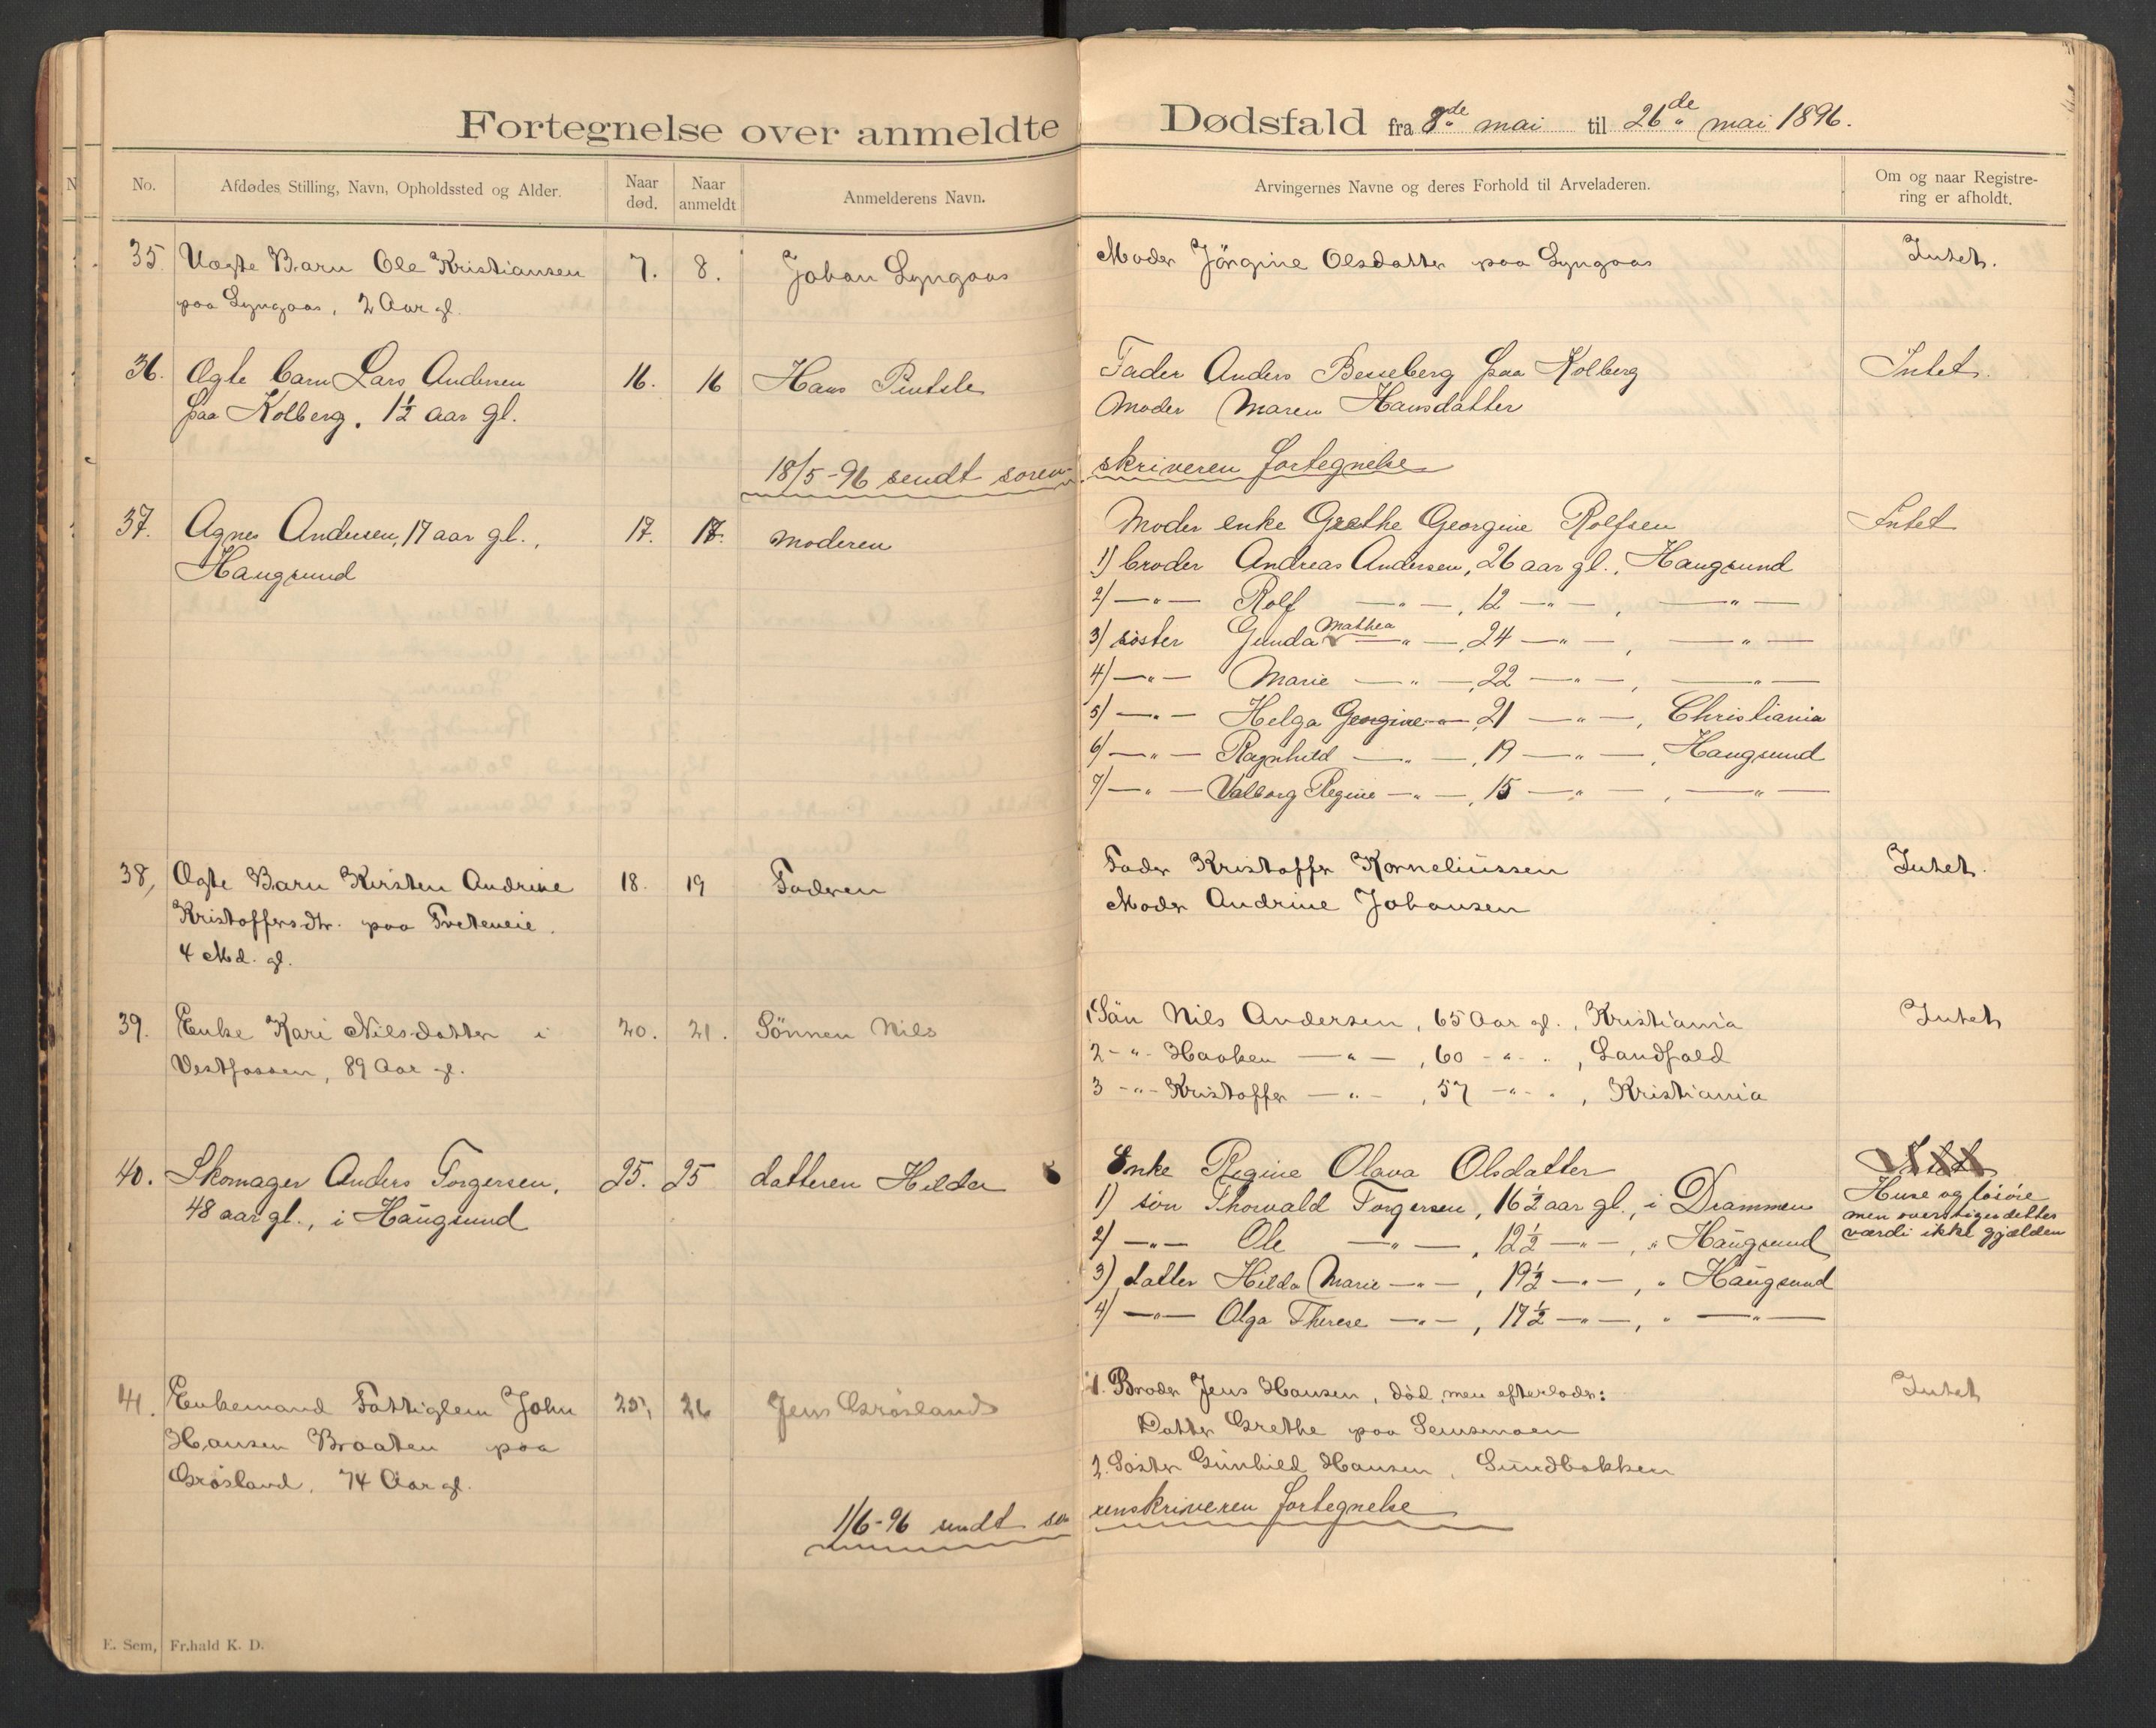 Fortegnelse over anmeldte Dødsfald fra 8de mai til 26de mai 1896.
No. Afdødes Stilling, Navn, Opholdssted og Alder. Naar død. Naar anmeldt Anmelderens Navn. Arvingernes Navne og deres Forhold til Arveladeren. Om og naar Registrering er afholdt.
35. Uægte Barn Ole Kristiansen 7. 8. Johan Lyngaas Moder Jörgine Olsdatter paa Lyngaas Intet.
paa Lyngaas, 2 Aar gl.
36. Ægte barn Lars Andersen 16. 16 Hans Fader Anders Besseberg paa Kolberg Intet.
paa Kolberg. 1½ aar gl. Moder Maren Hansdatter
18/5-96 sendt sorenskriveren fortegnelse
37. Agnes Andersen, 17 aar gl., 17. 18. moderen Moder enke Grethe Georgine Rolfsen Intet
Haugsund 1) broder Andreas Andersen, 26 aar gl., Haugsund
2) —"— Rolf —"—, 12 —"—, —"—
3) søster Gunda Mathea —"—, 24 —"—, —"—
4) —"— Marie —"—, 22 —"—, —"—
5) —"— Helga Georgine —"—, 21 —"—, Christiania
6) —"— Ragnhild —"—, 19 —"—, Haugsund
7) —"— Valborg Regine —"—, 15 —"—, —"—
38, Ægte Barn Kirsten Andrine 18. 19 Faderen Fader Kristoffer Korneliussen Intet.
Kristoffersdtr. paa Treteneie. Moder Andrine Johansen
4 Md. gl.
39. Enke Kari Nilsdatter i 20. 21. Sönnen Nils 1 Sön Nils Andersen, 65 Aar gl., Kristiania Intet
Vestfossen, 89 Aar gl. 2 -"- Haaken —"—, 60 -"-, Landfald
3 -"- Kristoffer —"—, 57 -"-, Kristiania
40. Skomager Anders Torgersen, 25. 25 datteren Hilda Enke Regine Olava Olsdatter Intet
48 aar gl., i Haugsund 1) søn Thorvald Torgersen, 16½ aar gl., i Drammen Huse og løsøre
men overstiger dettes
2) —"— Ole —"—, 12½ —"—, " Haugsund værdi ikke gjælden
3) datter Hilda Marie —"—, 19½ —"—, " Haugsund
4) —"— Olga Therese —"—, 17½ —"—, " —"—
41. Enkemand Fattiglem John 25, 26 Jens Grøsland 1. Broder Jens Hansen, död, men efterlader: Intet
Hansen Braaten paa Datter Grethe paa Semsmoen
Grøsland, 74 Aar gl. 2. Søster Gunhild Hansen, Sundbakken
1/6-96 sendt sorenskriveren fortegnelse
E. Sem, Fr.hald K. D.